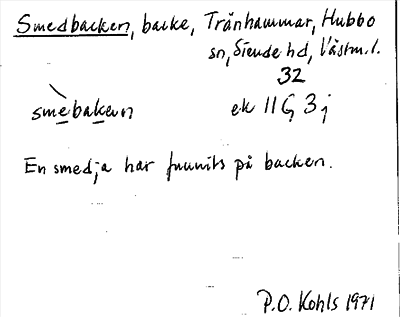 Smedbacken, backe, Trånhammar, Hubbo
sn, Siende hd, Västm. l.
32
smèbakevn
ek 11G 3j
En smedja har funnits på backen.
P.O. Kohls 1971